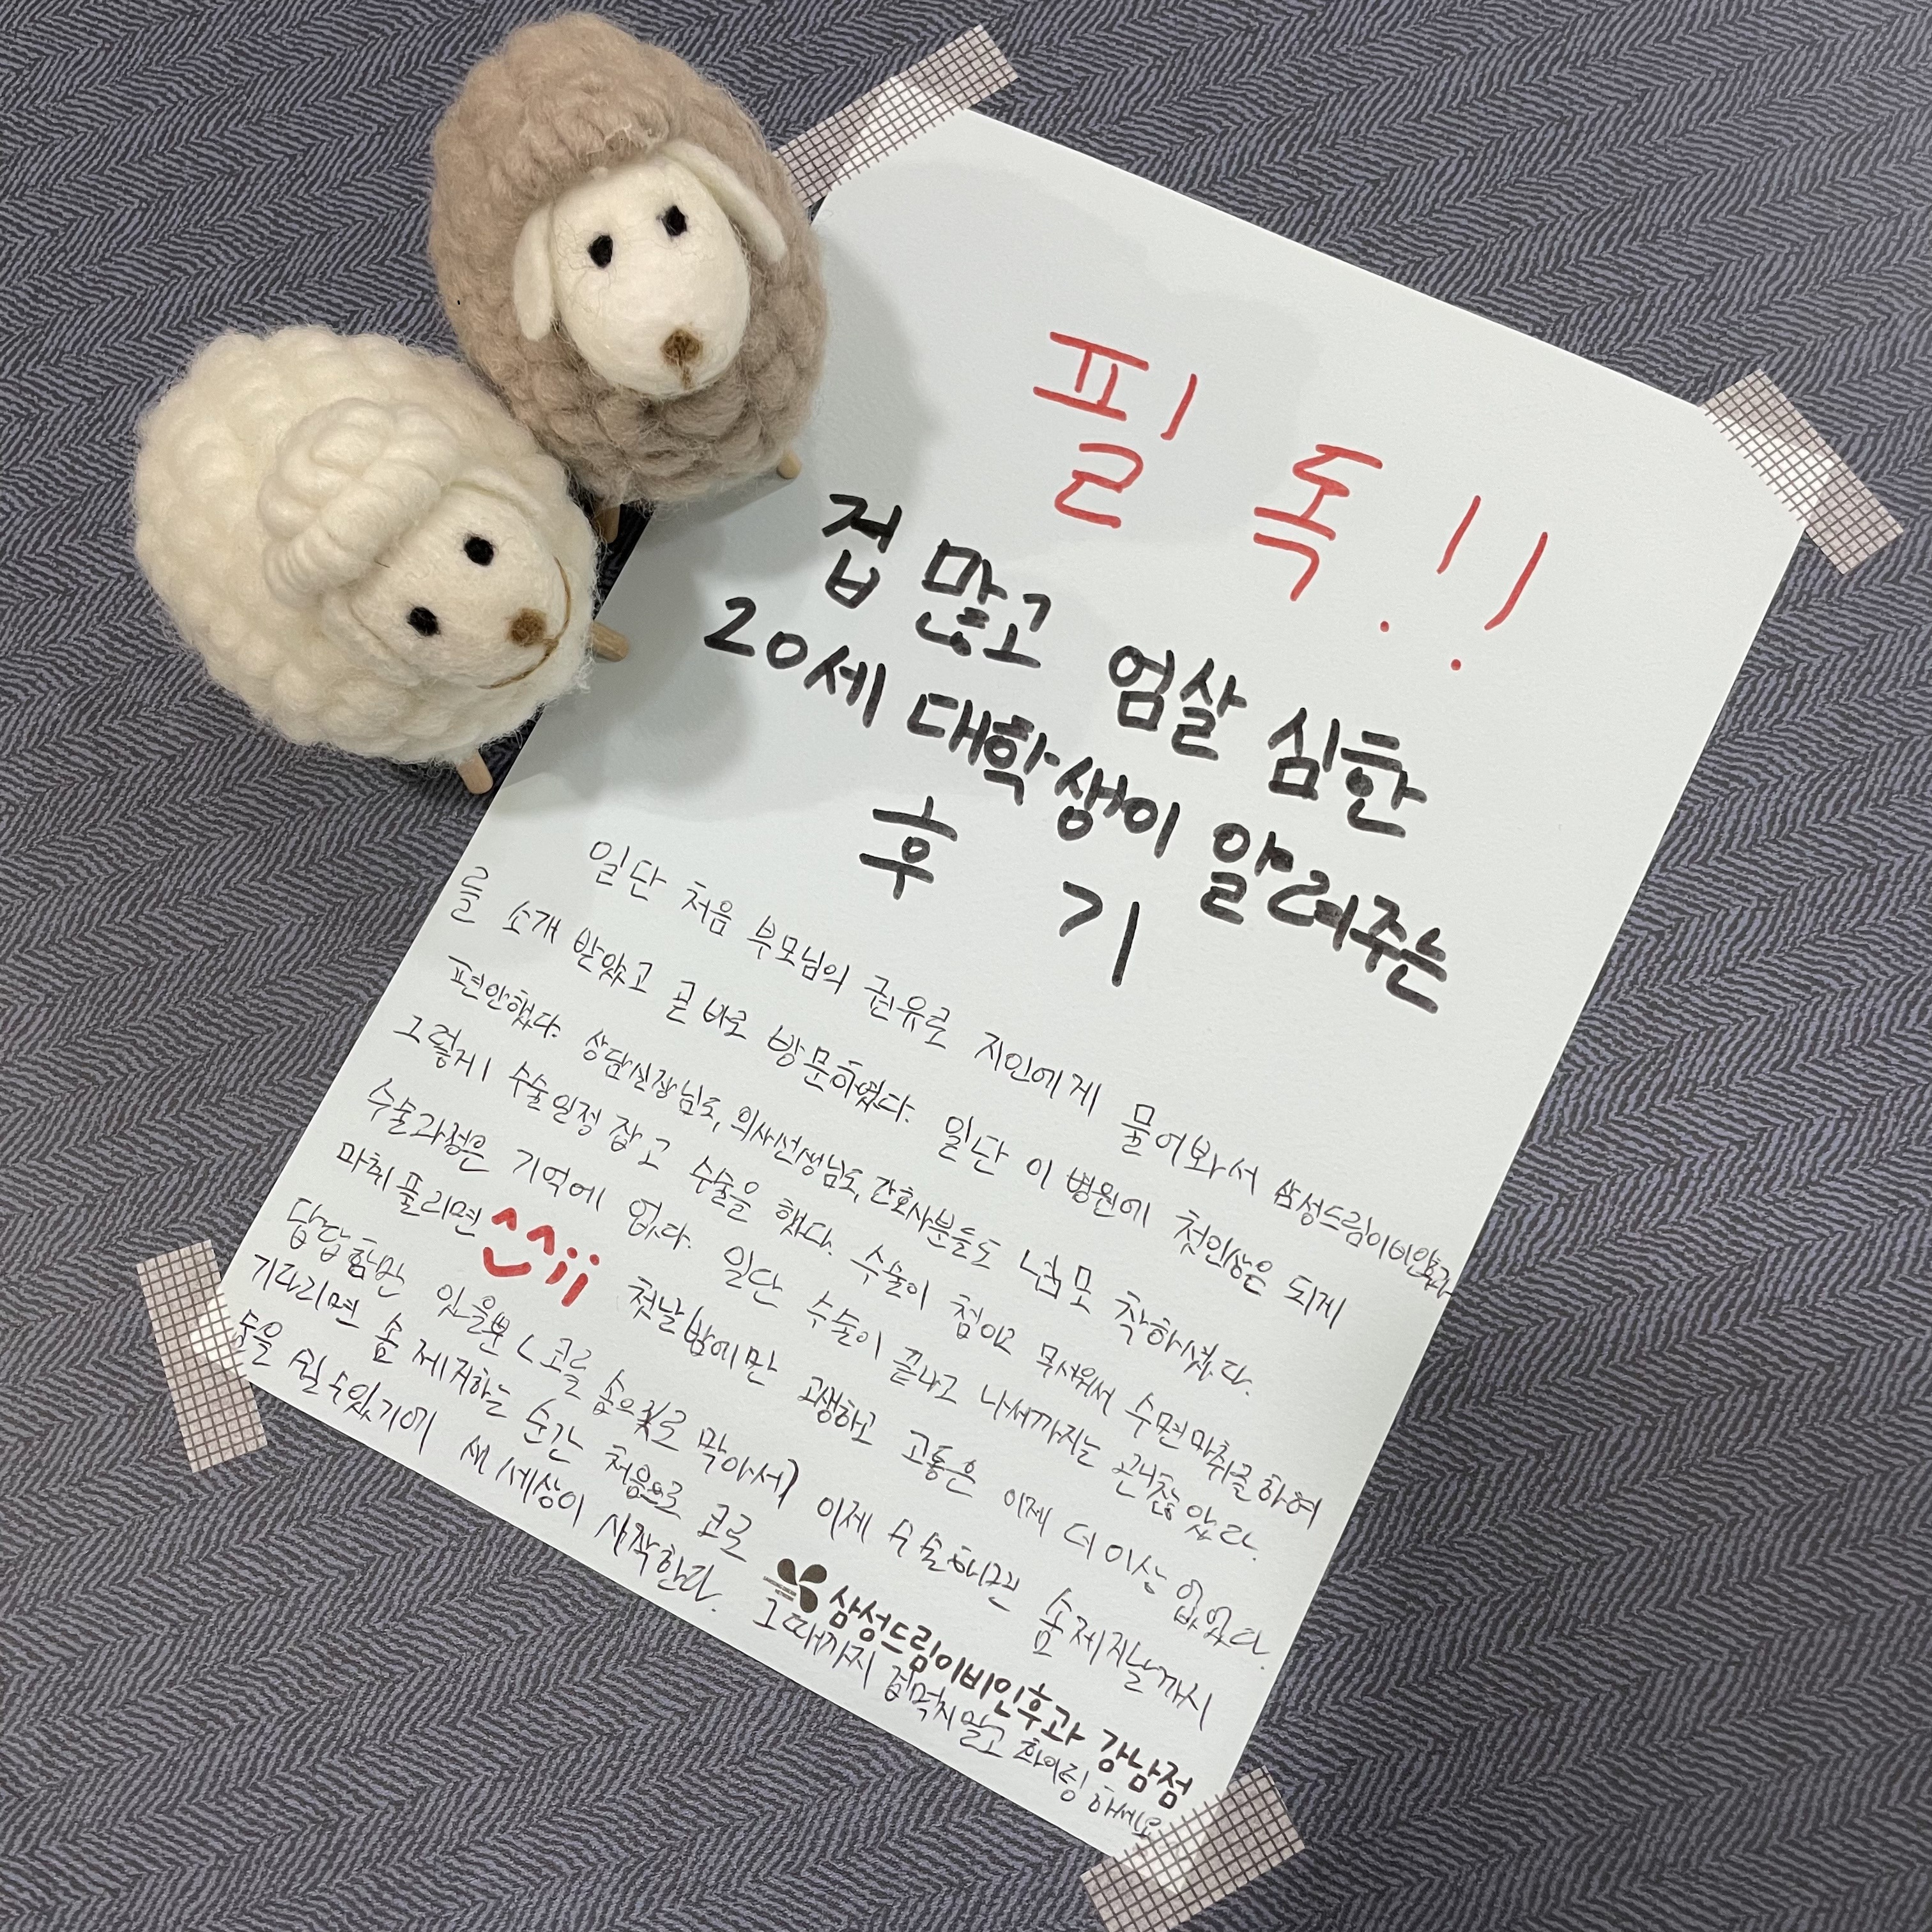 필독!!
겁 많고 엄살 심한
20세 대학생이 알려주는
후기
일단 처음 부모님의 권유로 지인에게 물어봐서 삼성드림이비인후과
를 소개 받았고 곧 바로 방문하였다. 일단 이 병원에 첫인상은 되게
편안했다. 상담실장님도, 의사선생님도, 간호사분들도 넘모 착하셨다.
그렇게 수술일정 잡고 수술을 했다. 수술이 첨이고 무서워서 수면마취를 하여
수술과정은 기억에 없다. 일단 수술이 끝나고 나서까지는 괜찮았다.
마취 풀리면 ^^ii 첫날밤에만 고생하고 고통은 이제 더 이상 없었다.
답답함만 있을뿐 (코를 솜으로 막아서) 이제 수술하니깐 솜제지날까지
기다리면 솜 제거하는 순간 처음으로 코로
숨을 쉴 수있기에 새 세상이 시작한다. 그때까지 겁먹지말고 화이링 하세요
삼성드림이비인후과 강남점